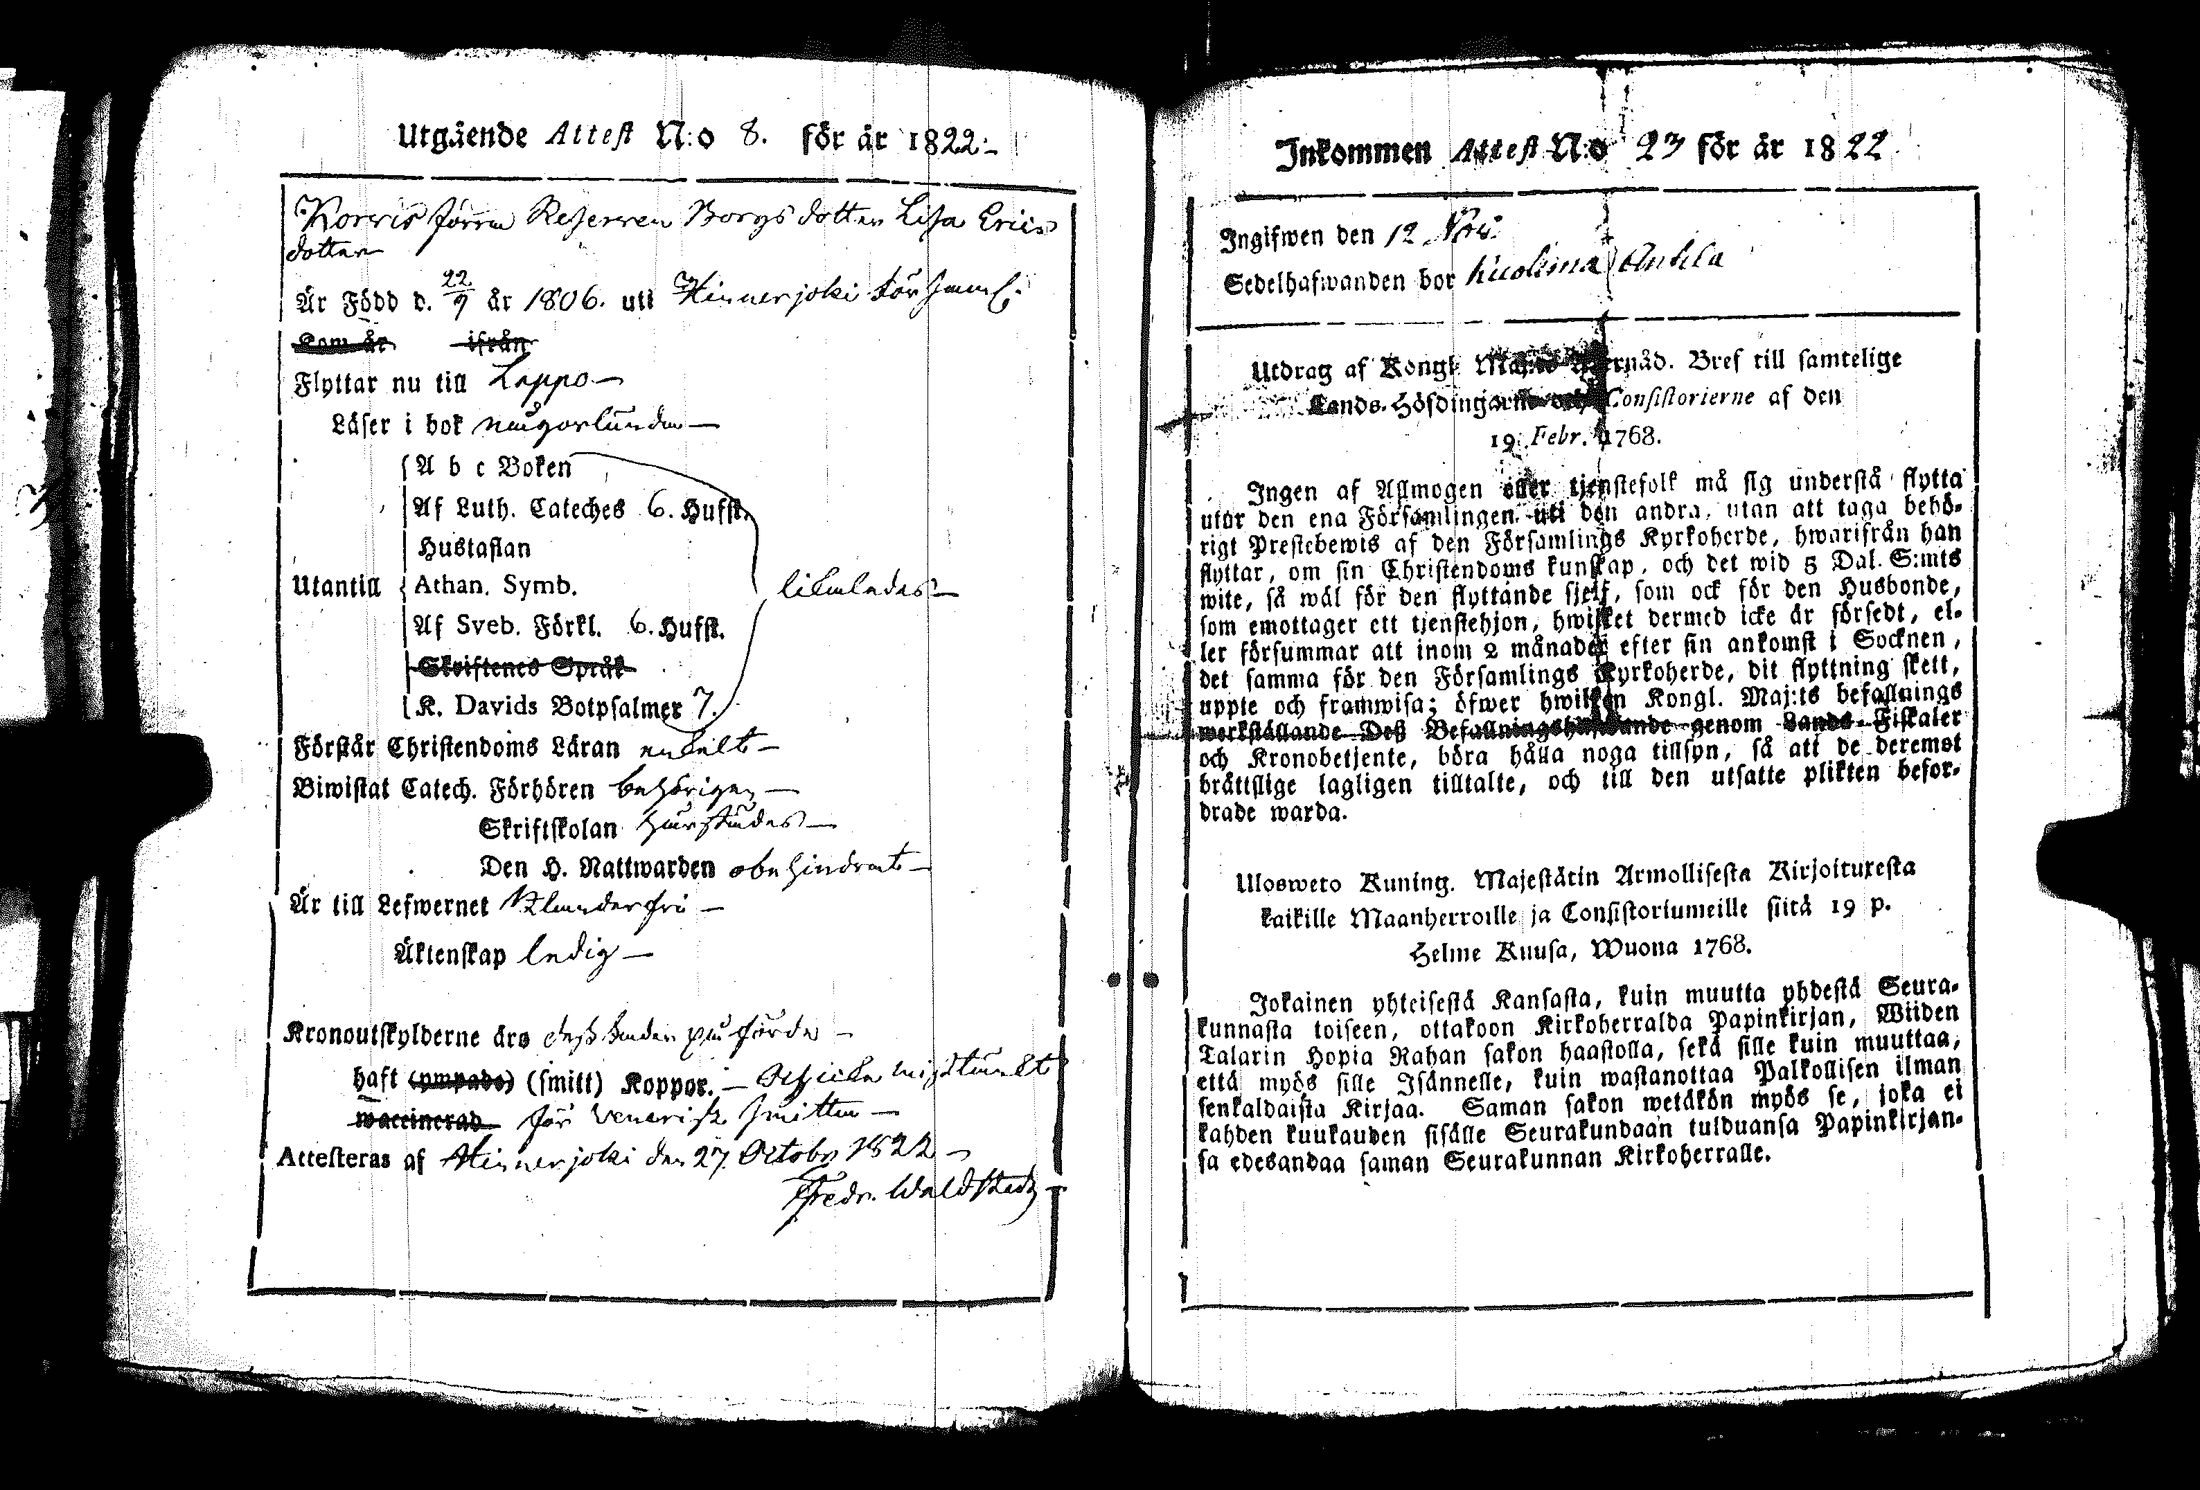 Utgående Attest N:o 8. för år 1822.
Korvis förra Reserven Borgs dotter Lisa Erics
dotter
Är Född d. 22/9 år 1806. uti Hinnerjoki Församl:
Kom år ifrån
Flyttar nu till Lappo
Läser i bok någorlunda
A b c Boken
Af Luth. Cateches 6. Hufst.
Hustaflan
Utantill Athan. Symb. likaledes
Af Sveb. Förkl. 6. Hufst.
Skriftenes Språk
K. Davids Botpsalmer 7.
Förstår Christendoms Läran enkelt
Biwistat Catech. Förhören behörigen
Skriftskolan
Den H. Nattwarden obehindrat
Är till Lefwernet Klanderfri
Äktenskap ledig
Kronoutskylderne äro påförde
haft (ympade) (smitt) Koppor. Och icke misstänkt
waccinerad för Venerisk smitta
Attesteras af Hinnerjoki den 27. Octobr 1822
Fredr. Waldstedt
Inkommen Attest N:o 23 för år 1822
Ingifwen den 12 Nov:
Sedelhafwanden bor Kuolima Anttila
Utdrag af Kongl. Maj:ts Nåd. Bref till samtelige
Lands-Höfdingarne och Consistorierne af den
19 Febr. 1768.
Ingen af Allmogen eller tjenstefolk må sig understå flytta
utur den ena Församlingen uti den andra, utan att taga behö-
rigt Prestebewis af den Församlings Kyrkoherde, hwarifrån han
flyttar, om sin Christendoms kunskap, och det wid 5 Dal. S:mts
wite, så wäl för den flyttande sjelf, som ock för den Husbonde,
som emottager ett tjenstehjon, hwilket dermed icke är försedt, el-
ler försummar att inom 2 månader efter sin ankomst i Socknen,
det samma för den Församlings Kyrkoherde, dit flyttning skett,
uppte och framwisa; öfwer hwilken Kongl. Maj:ts befallnings
werkställande Deß Befallningshafwande genom Lands-Fiskaler
och Kronobetjente, böra hålla noga tillsyn, så att de deremot
bråttslige lagligen tilltalte, och till den utsatte plikten befor-
drade warda.
Ulosweto Kuning. Majestätin Armollisesta Kirjoituxesta
kaikille Maanherroille ja Consistoriumeille siitä 19 p.
Helme Kuusa, Wuona 1768.
Jokainen yhteisestä Kansasta, kuin muutta yhdestä Seura-
kunnasta toiseen, ottakoon Kirkoherralda Papinkirjan, Wiiden
Talarin Hopia Rahan sakon haastolla, sekä sille kuin muuttaa,
että myös sille Isännelle, kuin wastanottaa Palkollisen ilman
senkaldaista Kirjaa. Saman sakon wetäkön myös se, joka ei
kahden kuukauden sisälle Seurakundaan tulduansa Papinkirjan-
sa edesandaa saman Seurakunnan Kirkoherralle.